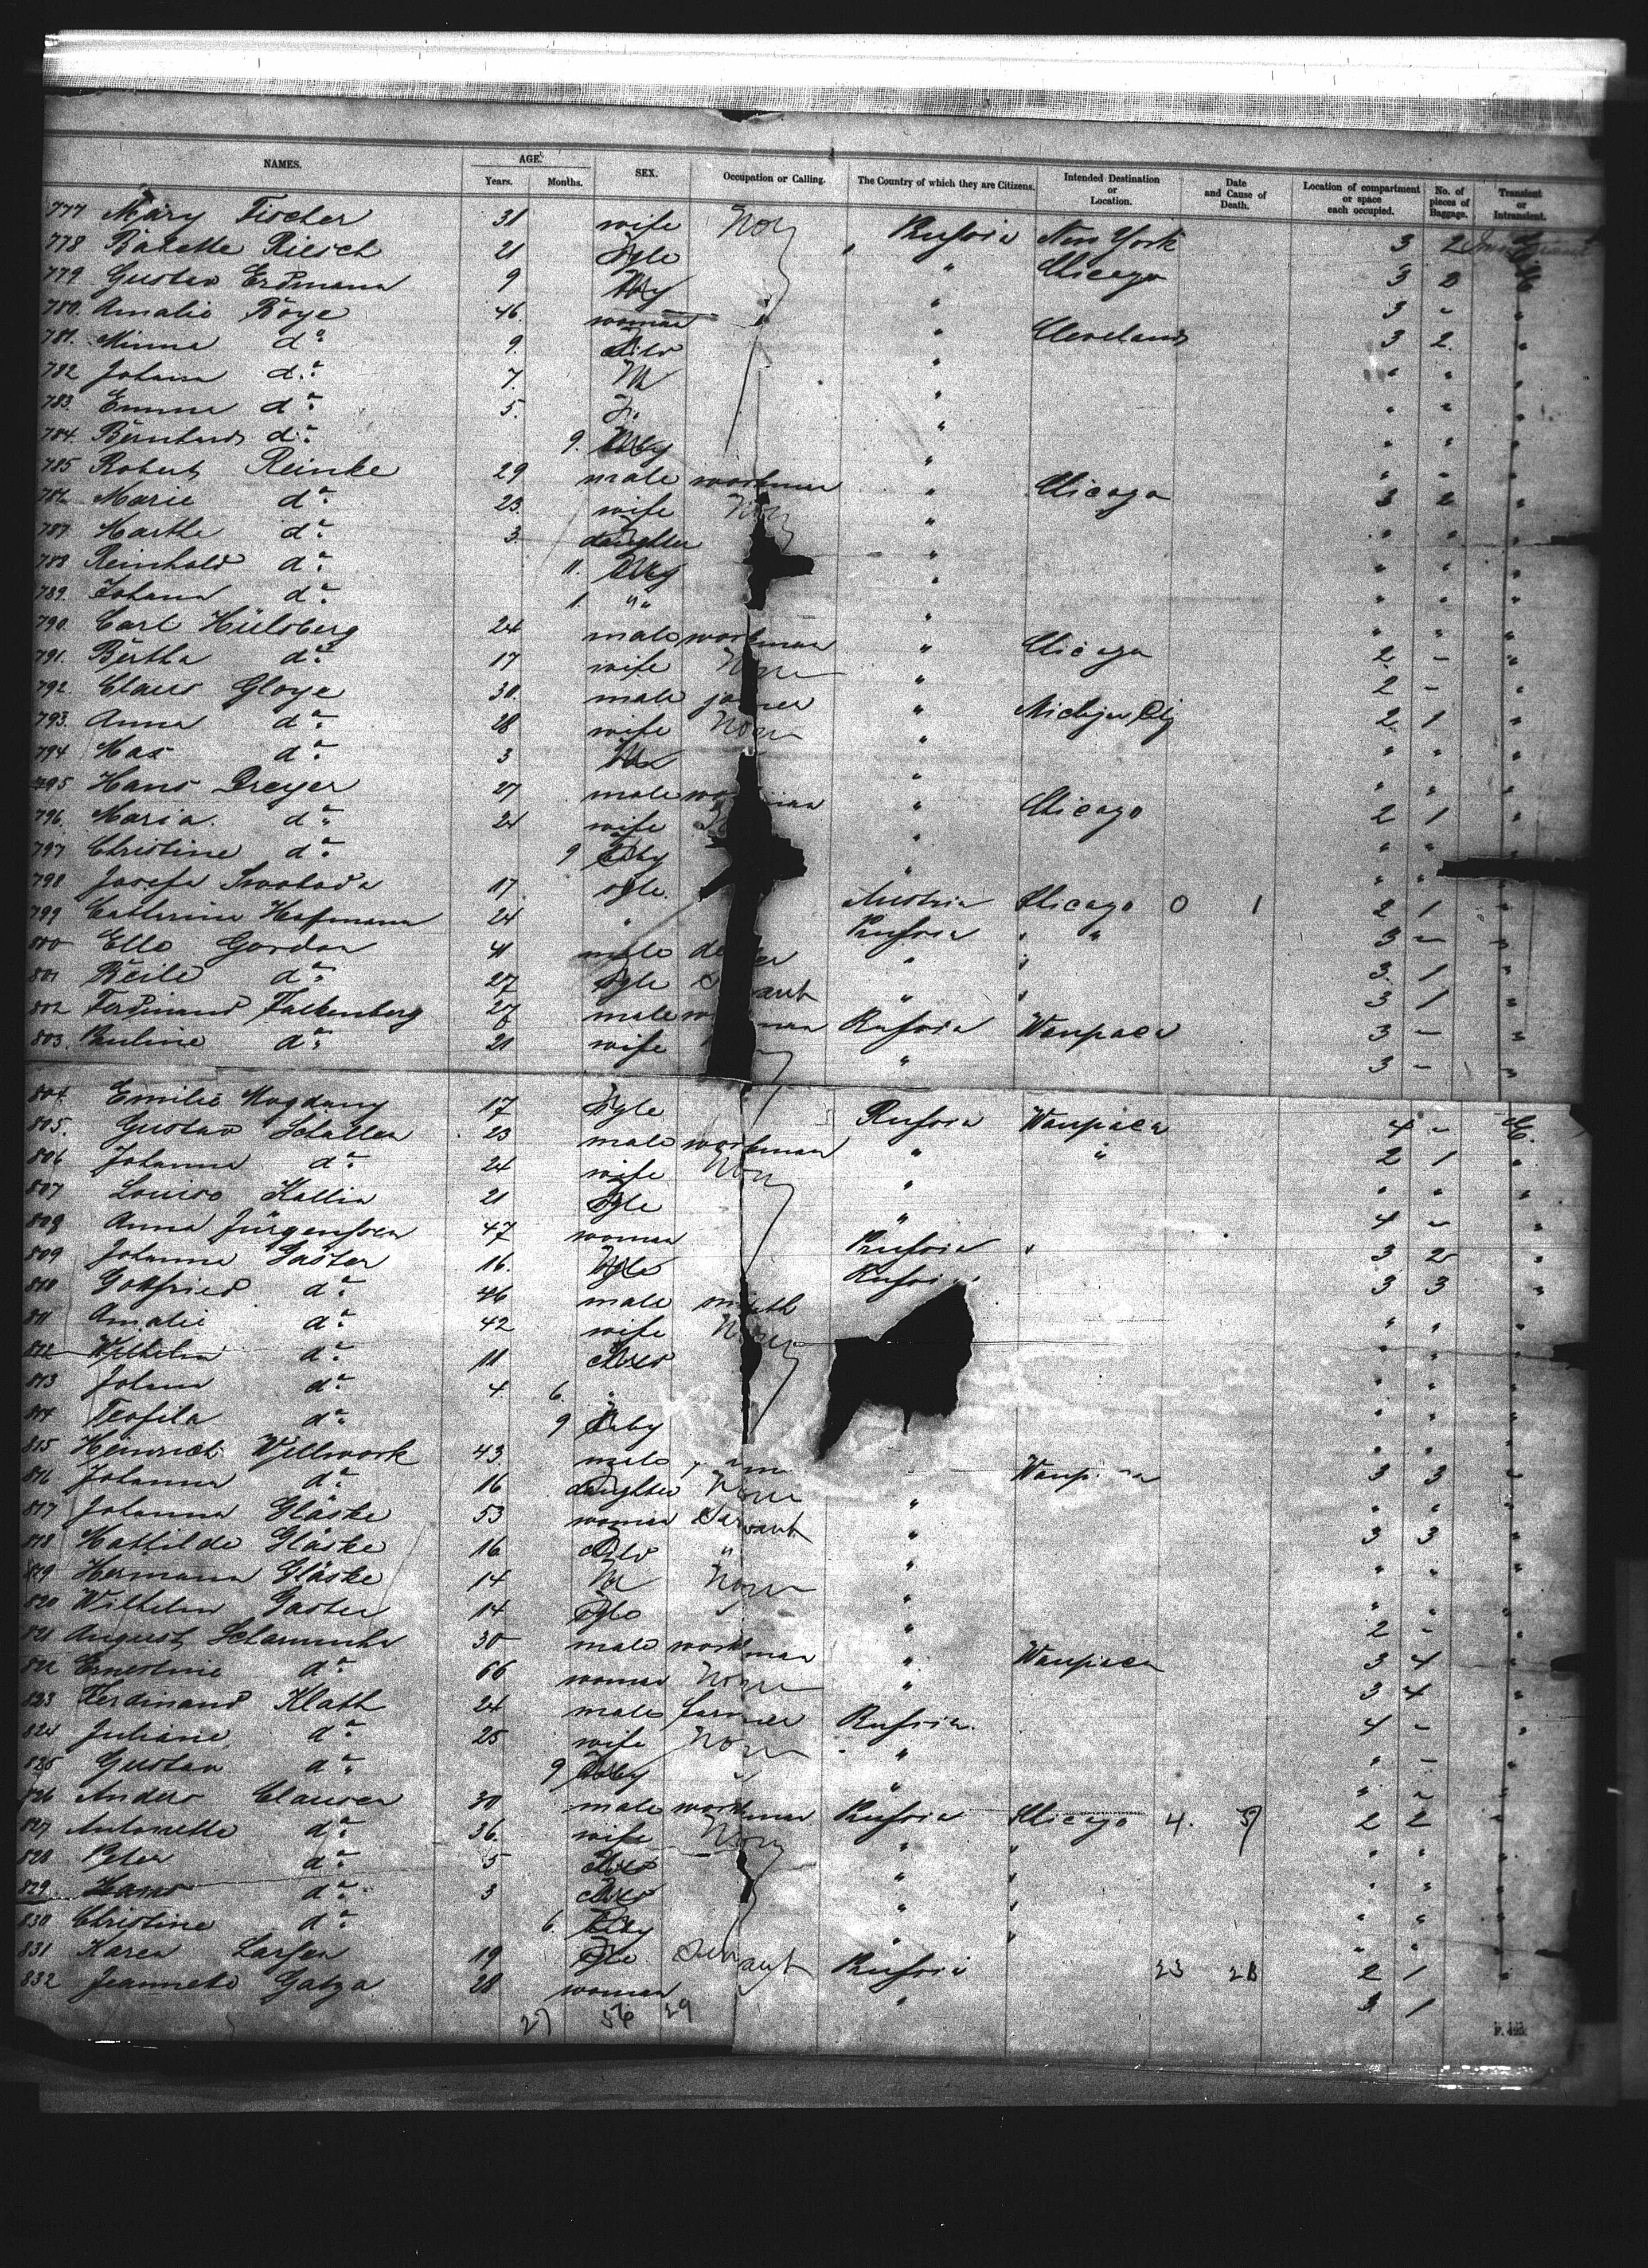 NAMES. AGE. Years. Months. SEX. Occupation or Calling. The Country of which they are Citizens. Intended Destination or Location. Date and Cause of Death. Location of compartment or space each occupied. No. of pieces of Baggage. Transient or Intransient.
777 Mary Fischer 31 wife Non Russia New York 3 2
778 Babette Riesch 21 sgle " Chicago 3 2
779 Gustav Erdmann 9 " 3 -
780. Amalie Böye 46. woman " Cleveland 3 2.
781. Minna do 9. child " " "
782 Johann do 7. M " " "
783. Emma do 5. " " "
784. Bernhard do 9. Baby " " "
785 Robert Reinke 29 male workman " Chicago 3 2 "
786 Marie do 23. wife Non " " " "
787 Martha do 3. daughter " " " "
788 Reinhold do 11. Baby " " " "
789. Johann do 1. " " " " "
790. Carl Hülsberg 24 male workman " Chicago 2 - "
791. Bertha do 17 wife None " 2 - "
792. Claus Gloye 30. male joiner " Michigan City 2 1 "
793. Anna do 28 wife None " " " "
794 Max do 3 M " " " "
795 Hans Dreyer 27 male workman " Chicago 2 1 "
796. Maria. do 24 wife " " " "
797 Christine do 9 Baby " " " "
798 Josefa Swoboda 17. sgle. Austria Chicago 0 1 2 1 "
799 Catharine Hofmann 24 " Russia " " 3 - "
800 Ello Gordon 41 male " " 3 1 "
801 Beile do 27 sgle " " 3 1 "
802 Ferdinand Falkenberg 27 male workman Russia Waupaca 3 - "
803. Pauline do 21 wife " 3 - "
804. Emilie Mogdany 17 sgle Russia Waupaca 4 -
805. Gustav Schaller 23 male workman " " 2 1 "
806 Johanna do 24 wife Non " " " "
807 Louise Kallin 21 sgle " 4 - "
808 Anna Jürgenssen 47 woman Russia " 3 2 "
809 Johanna Gaster 16. sgle Russia 3 3 "
810 Gottfried do 46 male smith " " "
811 Amalie do 42 wife Non " " "
812 Wilhelm do 11 child " "
813 Johann do 4. 6. " " " "
814 Teofila do 9 Baby " " "
815 Heinrich Wellwork 43. male Waupaca 3 3 "
816. Johanna do 16 daughter None " " " "
817 Johanna Gläske 53 woman Servant " 3 3 "
818 Mathilde Gläske 16 child " " " " "
819 Hermann Gläske 14 M None " " " "
820 Wilhelm Gaster 14 sgle " 2 - "
821 August Schramnke 30 male workman " Waupaca 3 4 "
822 Ernestine do 66 woman None " 3 4 "
823 Ferdinand Klath 24 male farmer Russia. 4 - "
824 Juliane do 25 wife Non " " - "
825 Gustav do 9 Baby " " - "
826 Anders Clausen 30 male workman Russia Chicago 4. 2 2 "
827 Antoinette do 36. wife Non " " " " "
828 Peter do 5 child " " " " "
829 Hans do 3 child " " " " "
830 Christine do 6. Baby " " " " "
831 Karen Larsen 19 sgle Servant Russia 23 28 2 1 "
832 Jeannette Galza 28 woman " 3 1
27 56 29